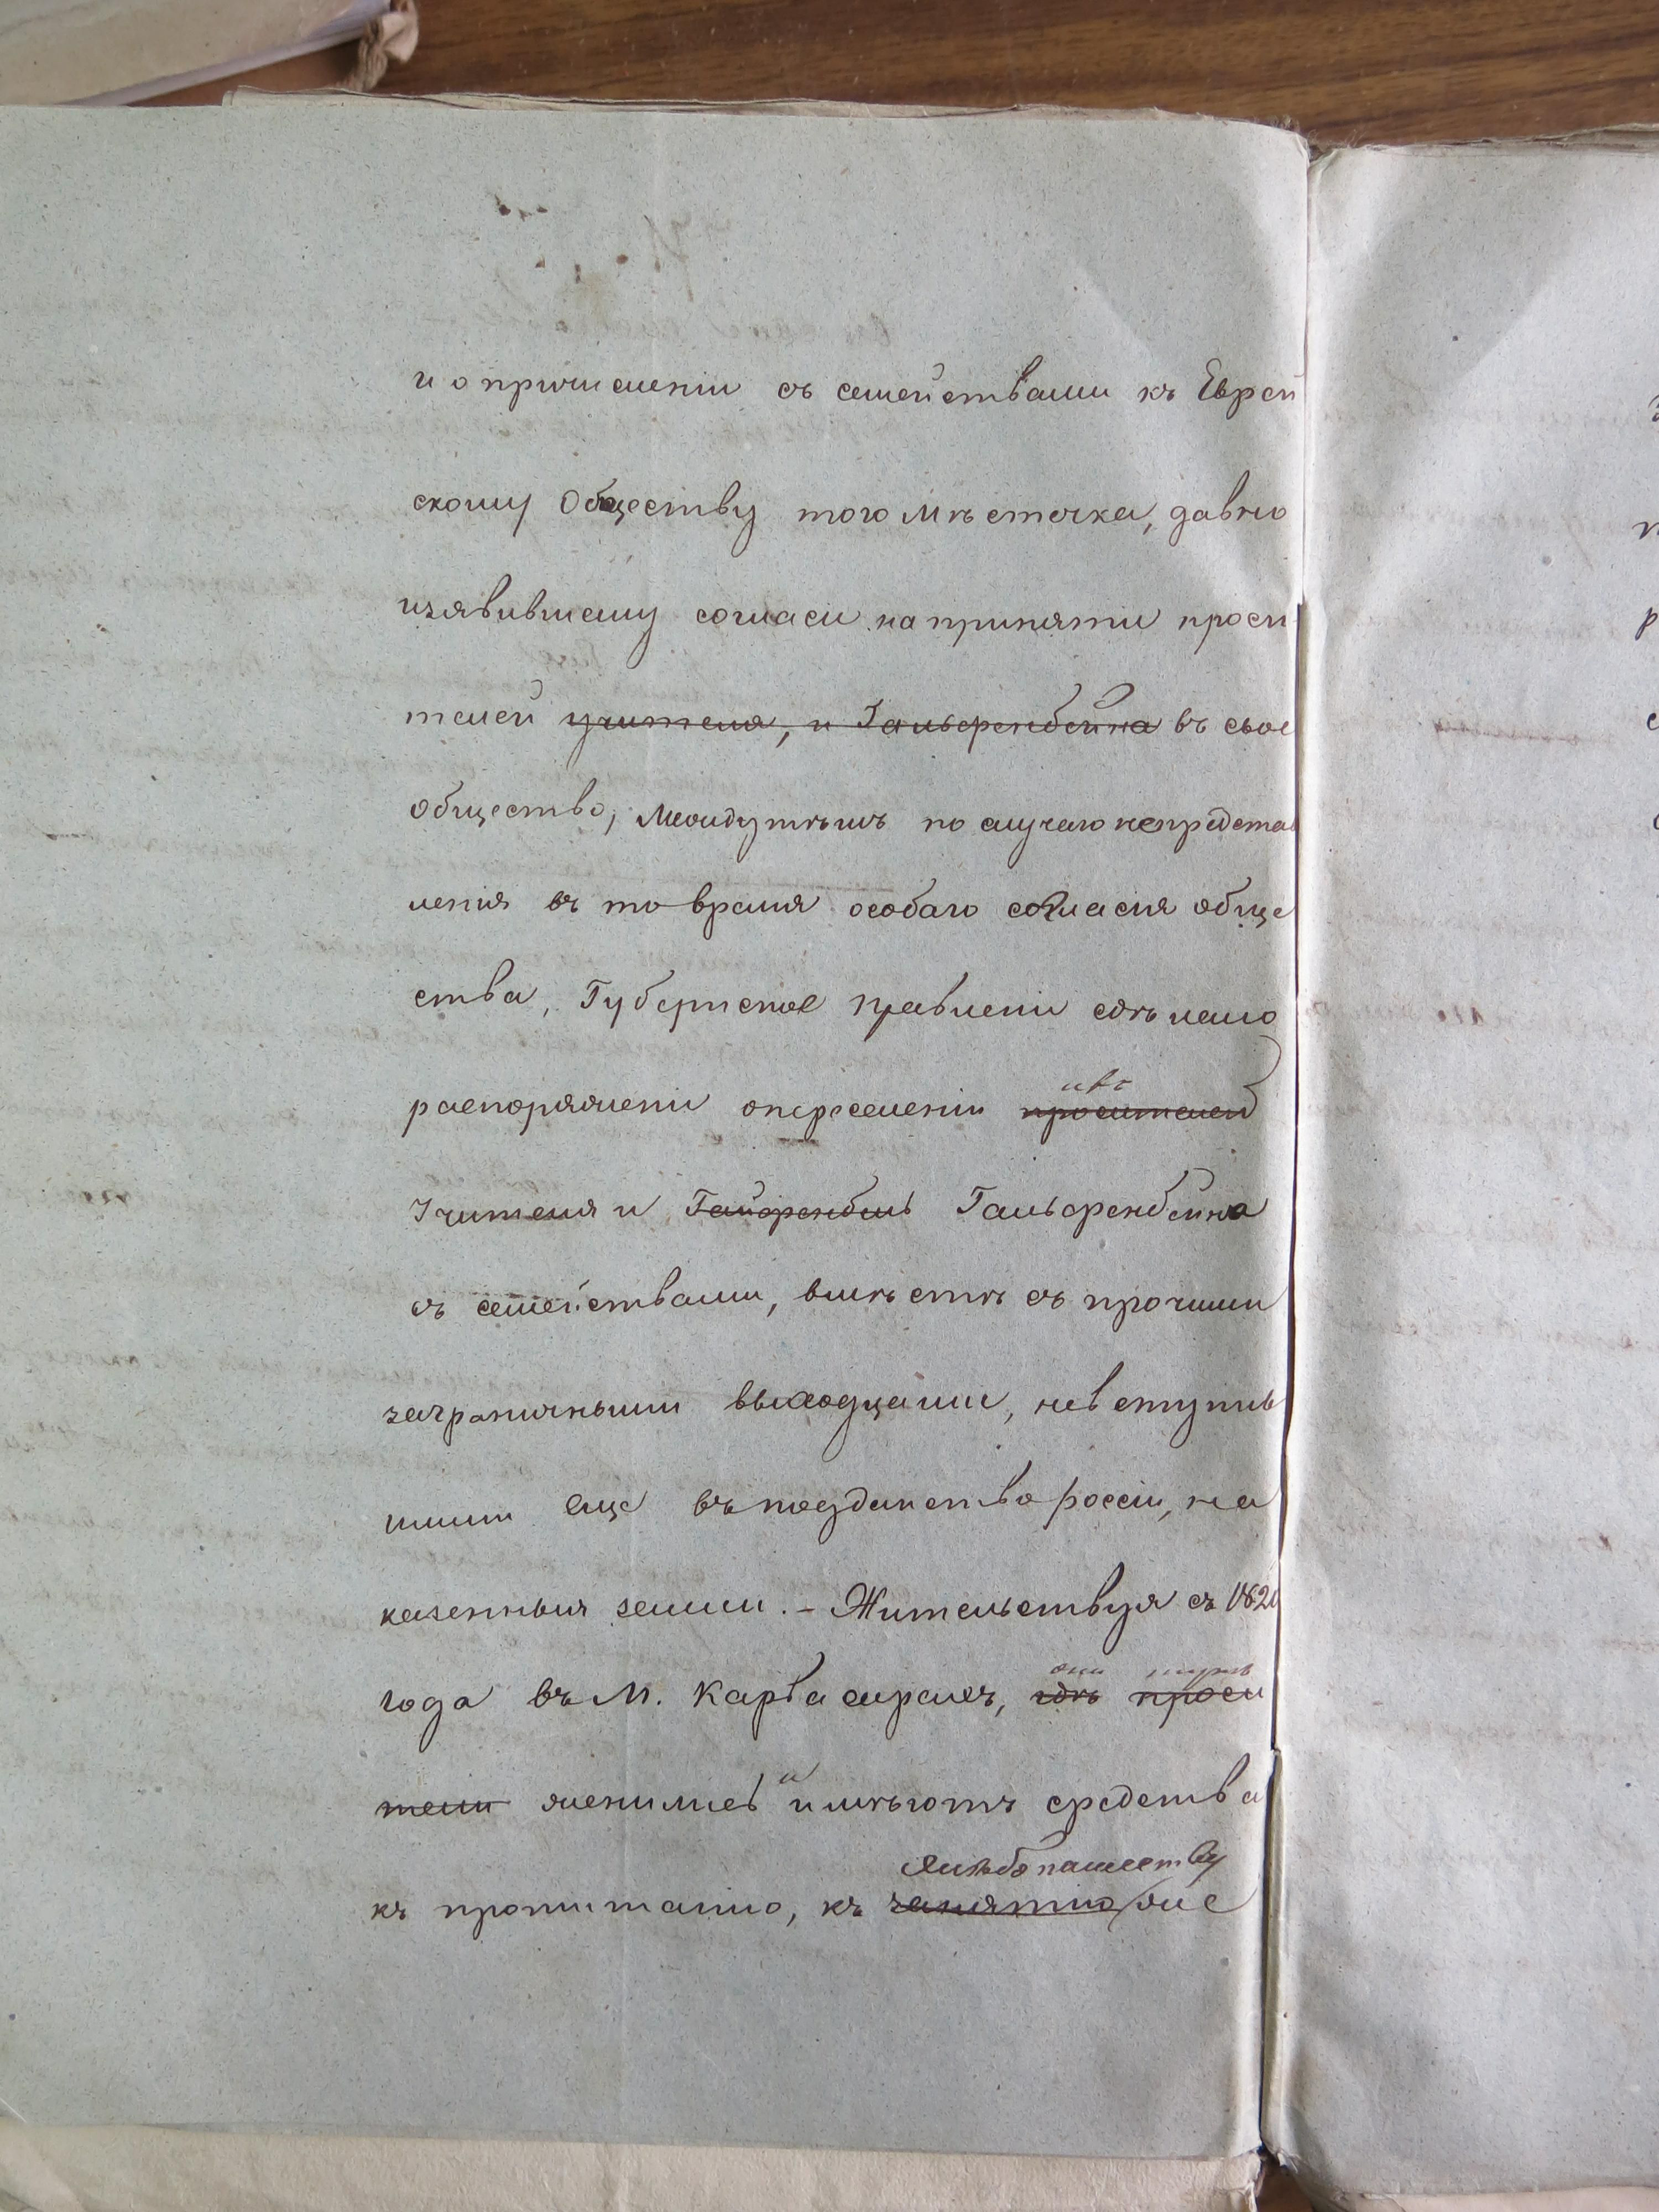 и о причисленіи съ семействами къ Еврей
скому Обществу того мѣстечка, давно
изявившему согласи на приняти проси
телей учителя, и Гальфенбейна въ свое
общество, Междутѣмъ по случаю непредстав
ленія въ то время особаго согласія обще
ства, Губернское Правлени сдѣлало
распоряжени опереселеніи просителей
Учителя и Гальфенбейна
съ семействами, вмѣстѣ съ прочими
заграничными выходцами, невступив
шими еще въ подданство россіи, на
казенныя земли. - Жительствуя съ 182
они
года въ М. , гдѣ проси
и
тели женились имѣютъ средства
хлѣбопашеству
къ пропитанію, къ занятію же